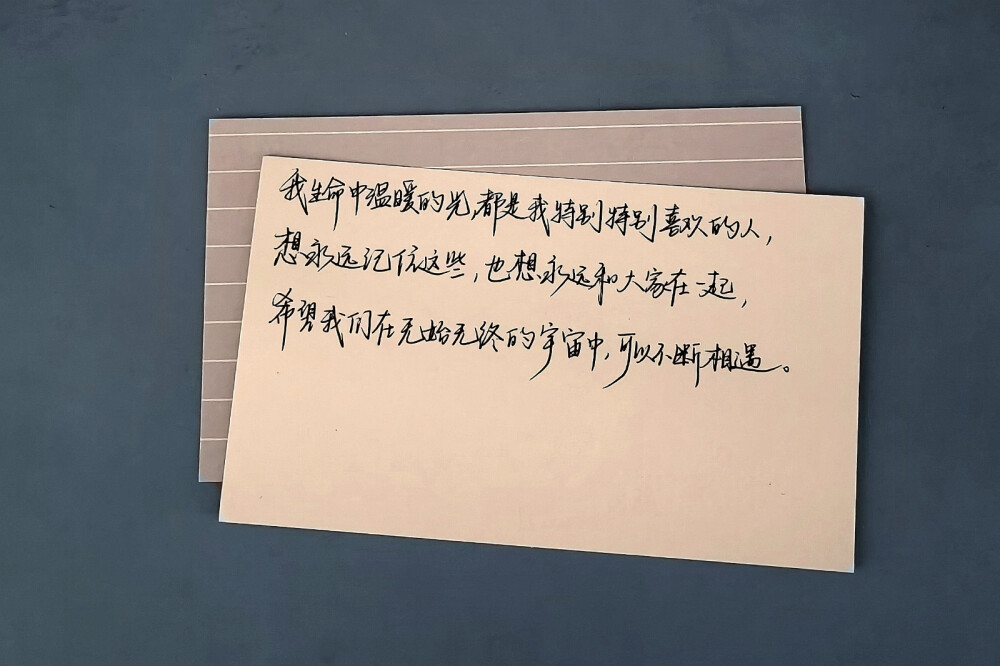 我生命中温暖的光,都是我特别特别喜欢的人,
想永远记住这些,也想永远和大家在一起,
希望我们在无始无终的宇宙中,可以不断相遇。